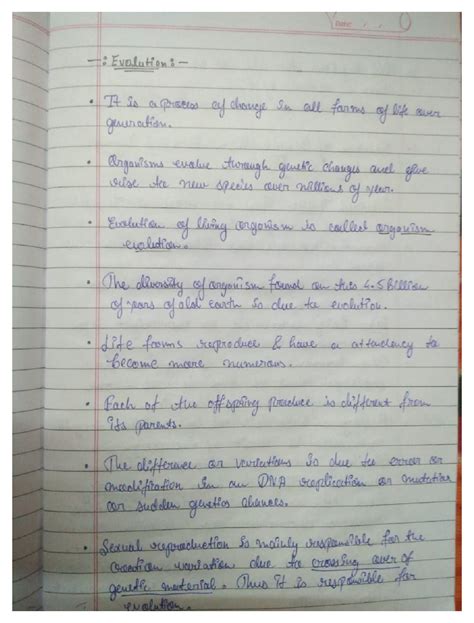 DATE
—: Evolution: —
• It is a process of change in all forms of life over
generation.
• Organisms evolve through genetic changes and give
rise to new species over millions of year.
• Evolution of living organism is called organism
evolution.
• The diversity of organism found on this 4.5 Billion
of years of old earth is due to evolution.
• Life forms reproduce & have a attendency to
become more numerous.
• Each of the offspring produce is different from
its parents.
• The difference or variations is due to error or
modification in our DNA replication or mutation
or sudden genetics chances.
• Sexual reproduction is mainly responsible for the
creation variation due to crossing over of
genetic material. Thus it is responsible for
evolution.